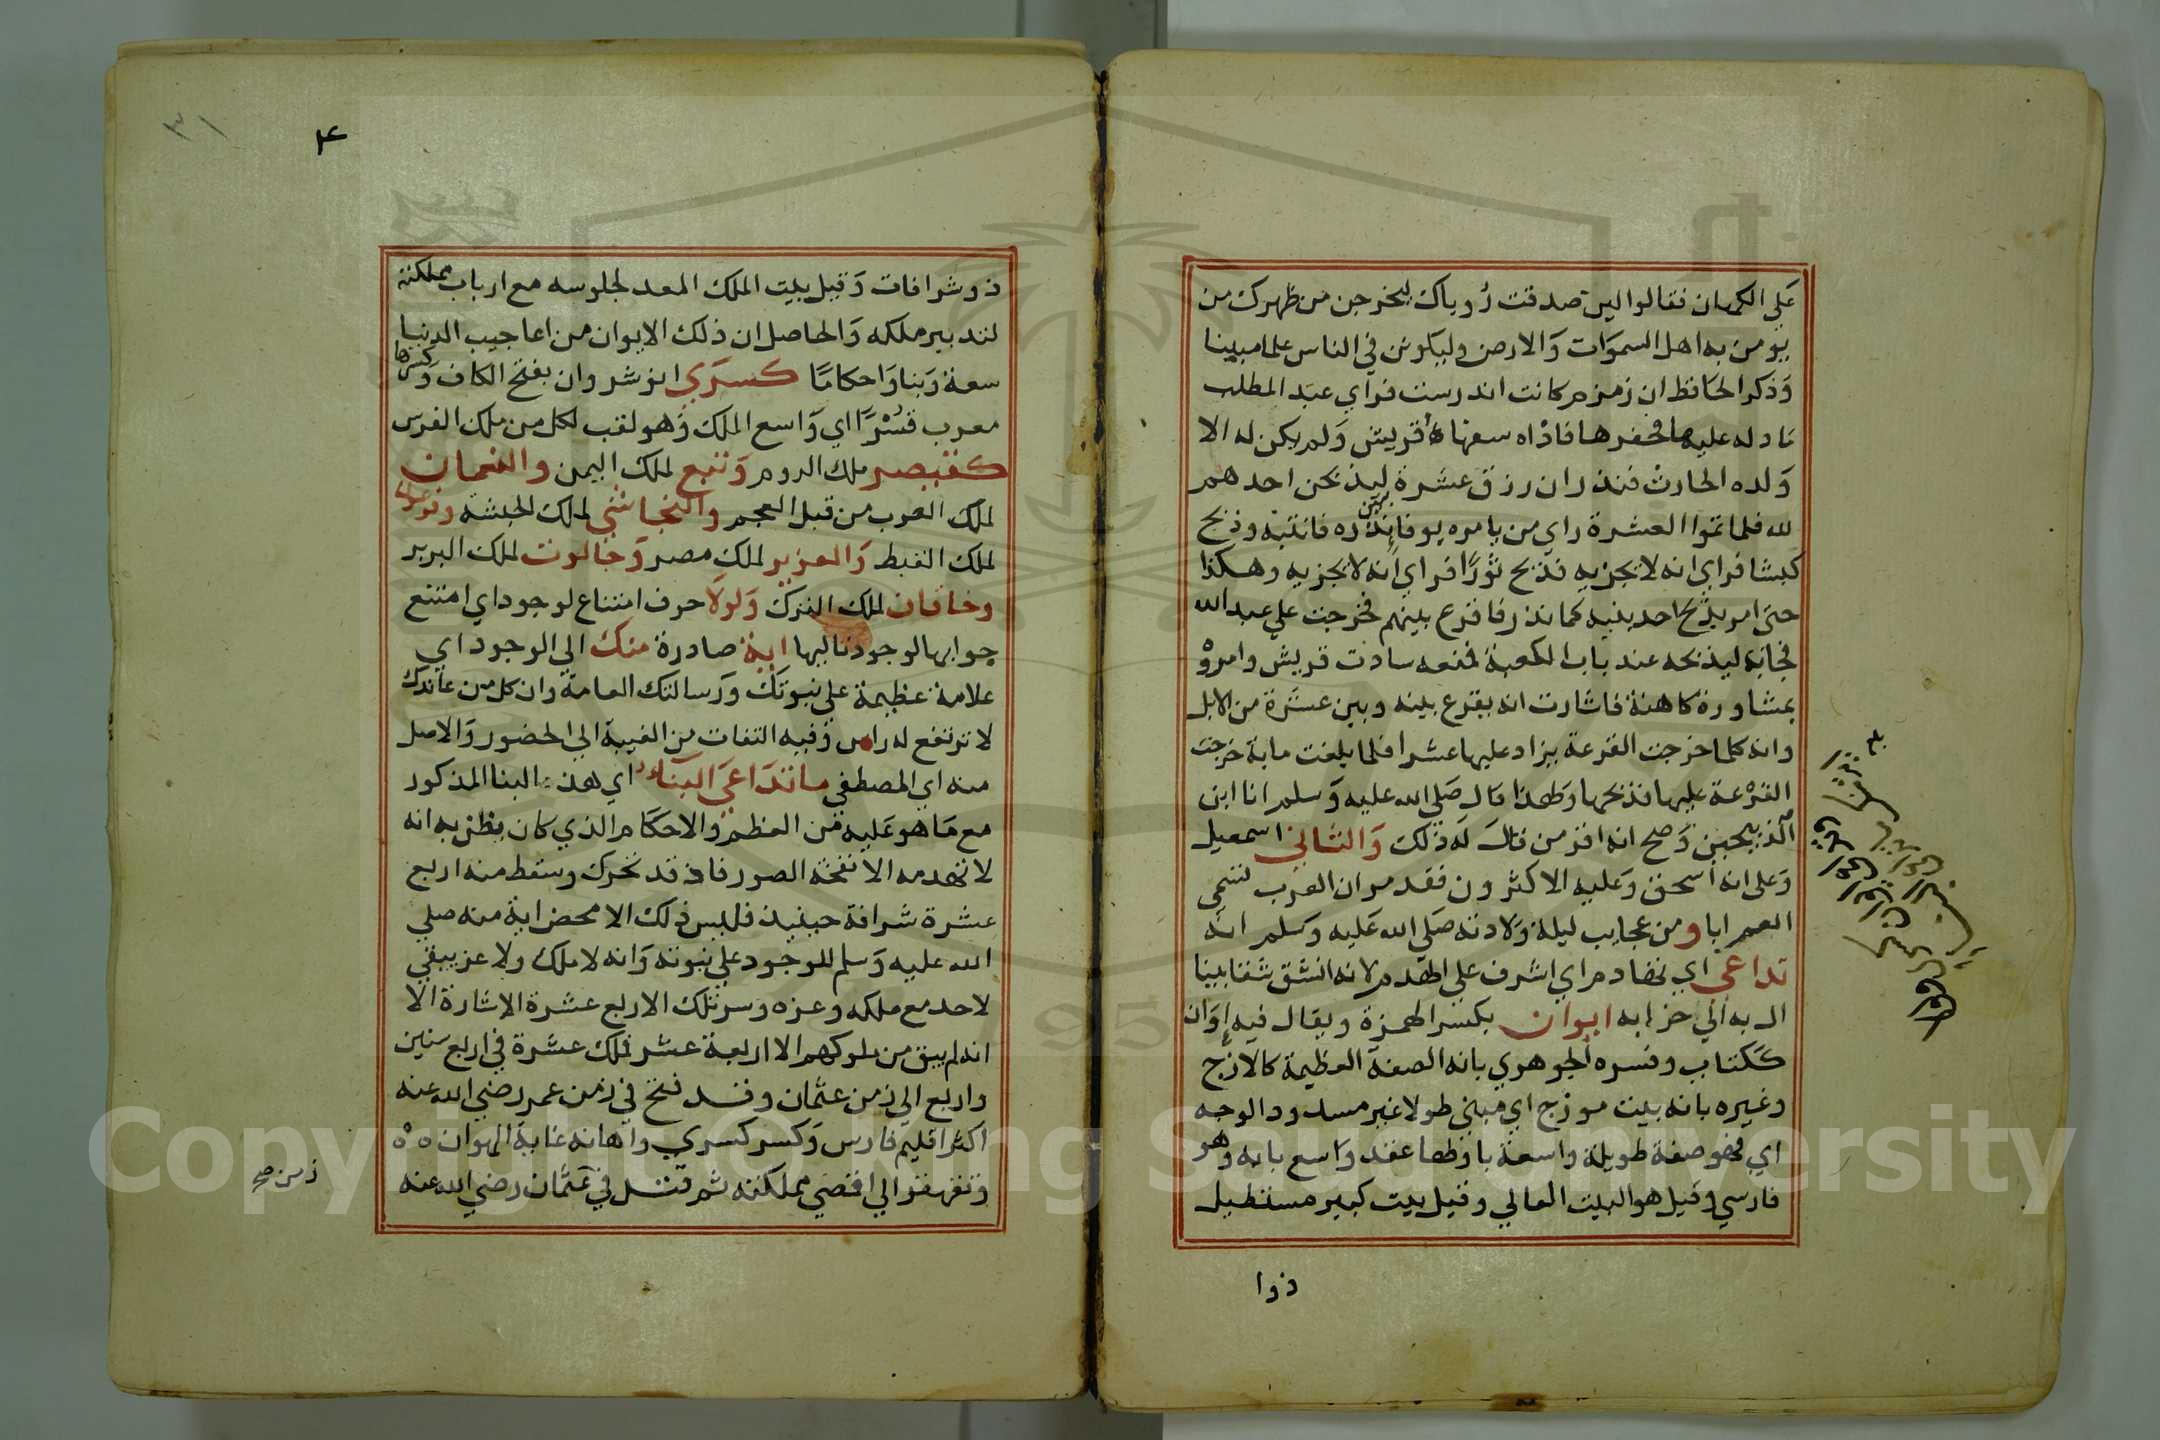 على الكهان فقالوا لين صدقت رؤياك ليخرجن من ظهرك من
يومن به اهل السموات والارض وليكونن في الناس علما مبينا
وذكر الحافظ ان زمزم كانت اندرست فراي عبد المطلب
ما دله عليها فحفرها فاذاه سعهاء قريش ولم يكن له الا
ولده الحارث فنذر ان رزق عشرة ليذبحن احدهم
لله فلما تموا العشرة راي من يامره بوفا نذره فانتبه وذبح
كبشا فراي انه لا يجزيه فذبح ثورا فراي انه لا يجزيه وهكذا
حتى امر بذبح احد بنيه كما نذر فاقرع بينهم فخرجت على عبد الله
فجابه ليذبحه عند باب الكعبة فمنعه سادت قريش وامروه
بمشاورة كاهنة فاشارت انه يقرع بينه وبين عشرة من الابل
وانه كلما خرجت القرعة يزاد عليها عشرا فلما بلغت ماية خرجت
القرعة عليها فذبحها ولهذا قال صلى الله عليه وسلم انا ابن
الذبيحين وصح انه اقر من قال له ذلك والثاني اسمعيل
وعلى انه اسحق وعليه الاكثرون فقد مر ان العرب تسمي
العم ابا ومن عجايب ليلة ولادته صلى الله عليه وسلم انه
تداعى اي تخادم اي اشرف على الهدم لانه انشق شقا بينا
ال به الي خرابه ايوان بكسر الهمزة ويقال فيه إوان
ككتاب وفسره الجوهري بانه الصفة العظيمة كالازج
وغيره بانه بيت موزج اي مبني طولا غير مسدود الوجه
اي فهو صفة طويلة واسعة باولها عقد واسع بابه وهو
فارسي وقيل هو البيت العالي وقيل بيت كبير مستطيل
ذوا
٣١
٤
ذو شرافات وقيل بيت الملك المعد لجلوسه مع ارباب مملكته
لتدبير ملكه والحاصل ان ذلك الايوان من اعاجيب الدنيا
سعة وبنا واحكاما كسرى انوشروان بفتح الكاف وكسرها
معرب خسرا اي واسع الملك وهو لقب لكل من ملك الفرس
كقيصر ملك الروم وتبع لملك اليمن والنعمان
لملك العرب من قبل العجم والنجاشي لملك الحبشة وفرعون
لملك القبط والعزيز لملك مصر وجالوت لملك البربر
وخاقان لملك الترك ولولا حرف امتناع لوجود اي امتنع
جوابها لوجود تاليها اية صادرة منك الي الوجود اي
علامة عظيمة على نبوتك ورسالتك العامة وان كل من عاندك
لا ترتفع له راس وفيه التفات من الغيبة الي الحضور والاصل
منه اي المصطفي ما تداعى البناء اي هذه البنا المذكور
مع ما هو عليه من العظم والاحكام الذي كان يظن به انه
لا تهدمه الا نفخة الصور فاذ قد تحرك وسقط منه اربع
عشرة شرافة حينيذ فليس ذلك الا محض اية منه صلى
الله عليه وسلم للوجود على نبوته وانه لا ملك ولا عز يبقي
لاحد مع ملكه وعزه وسر تلك الاربع عشرة الاشارة الا
انه لم يبق من ملوكهم الا اربعة عشر فملك عشرة في اربع سنين
واربع الي زمن عثمان وقد فتح في زمن عمر رضي الله عنه
اكثر اقليم فارس وكسر كسري واهانه غاية الهوان
وتقهقر الي اقصي مملكته ثم قتل في عثمان رضي الله عنه
زمن صح